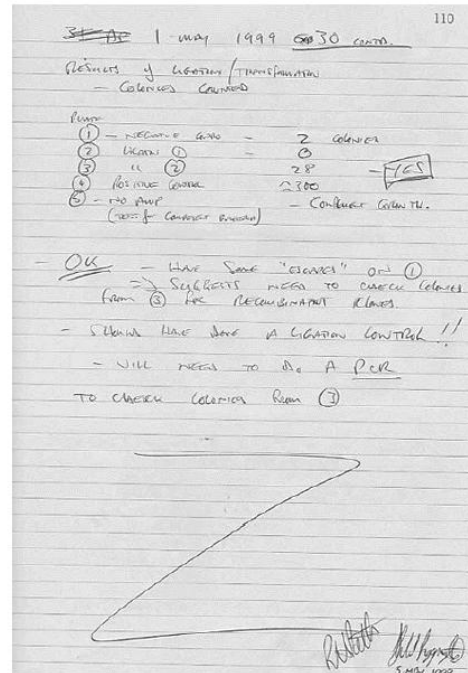 110
1 May 1999 30 contd.
Results of Ligation/Transformation
- Colonies Counted
Plate
① - Negative - 2 colonies
② Ligation ① - 0
③ " ② 28 - YES
④ Positive Control ≈300
⑤ - No Amp - Confluent Growth.
(test for competent bacteria)
- OK - Have some "escapes" on ①
=> Suggests need to check colonies
from ③ for recombinant clones.
- Should have done a ligation control!!
- Will need to do a PCR
to check colonies from ③
5 May 1999